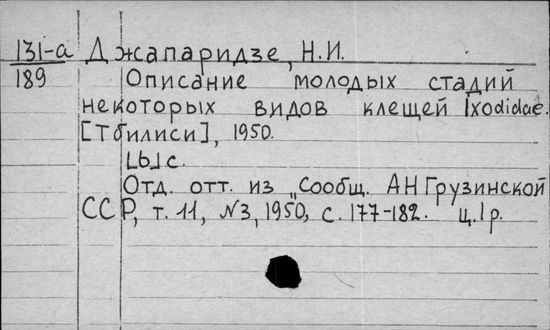 131-а Джапаридзе, Н.И.
189 Описание молодых стадий
некоторых видов клещей Ixodidae.
[Тбилиси], 1950.
[6] с.
Отд. отт. из „Сообщ. АН Грузинской
ССР, т. 11, №3, 1950, с. 177-182. ц.1р.